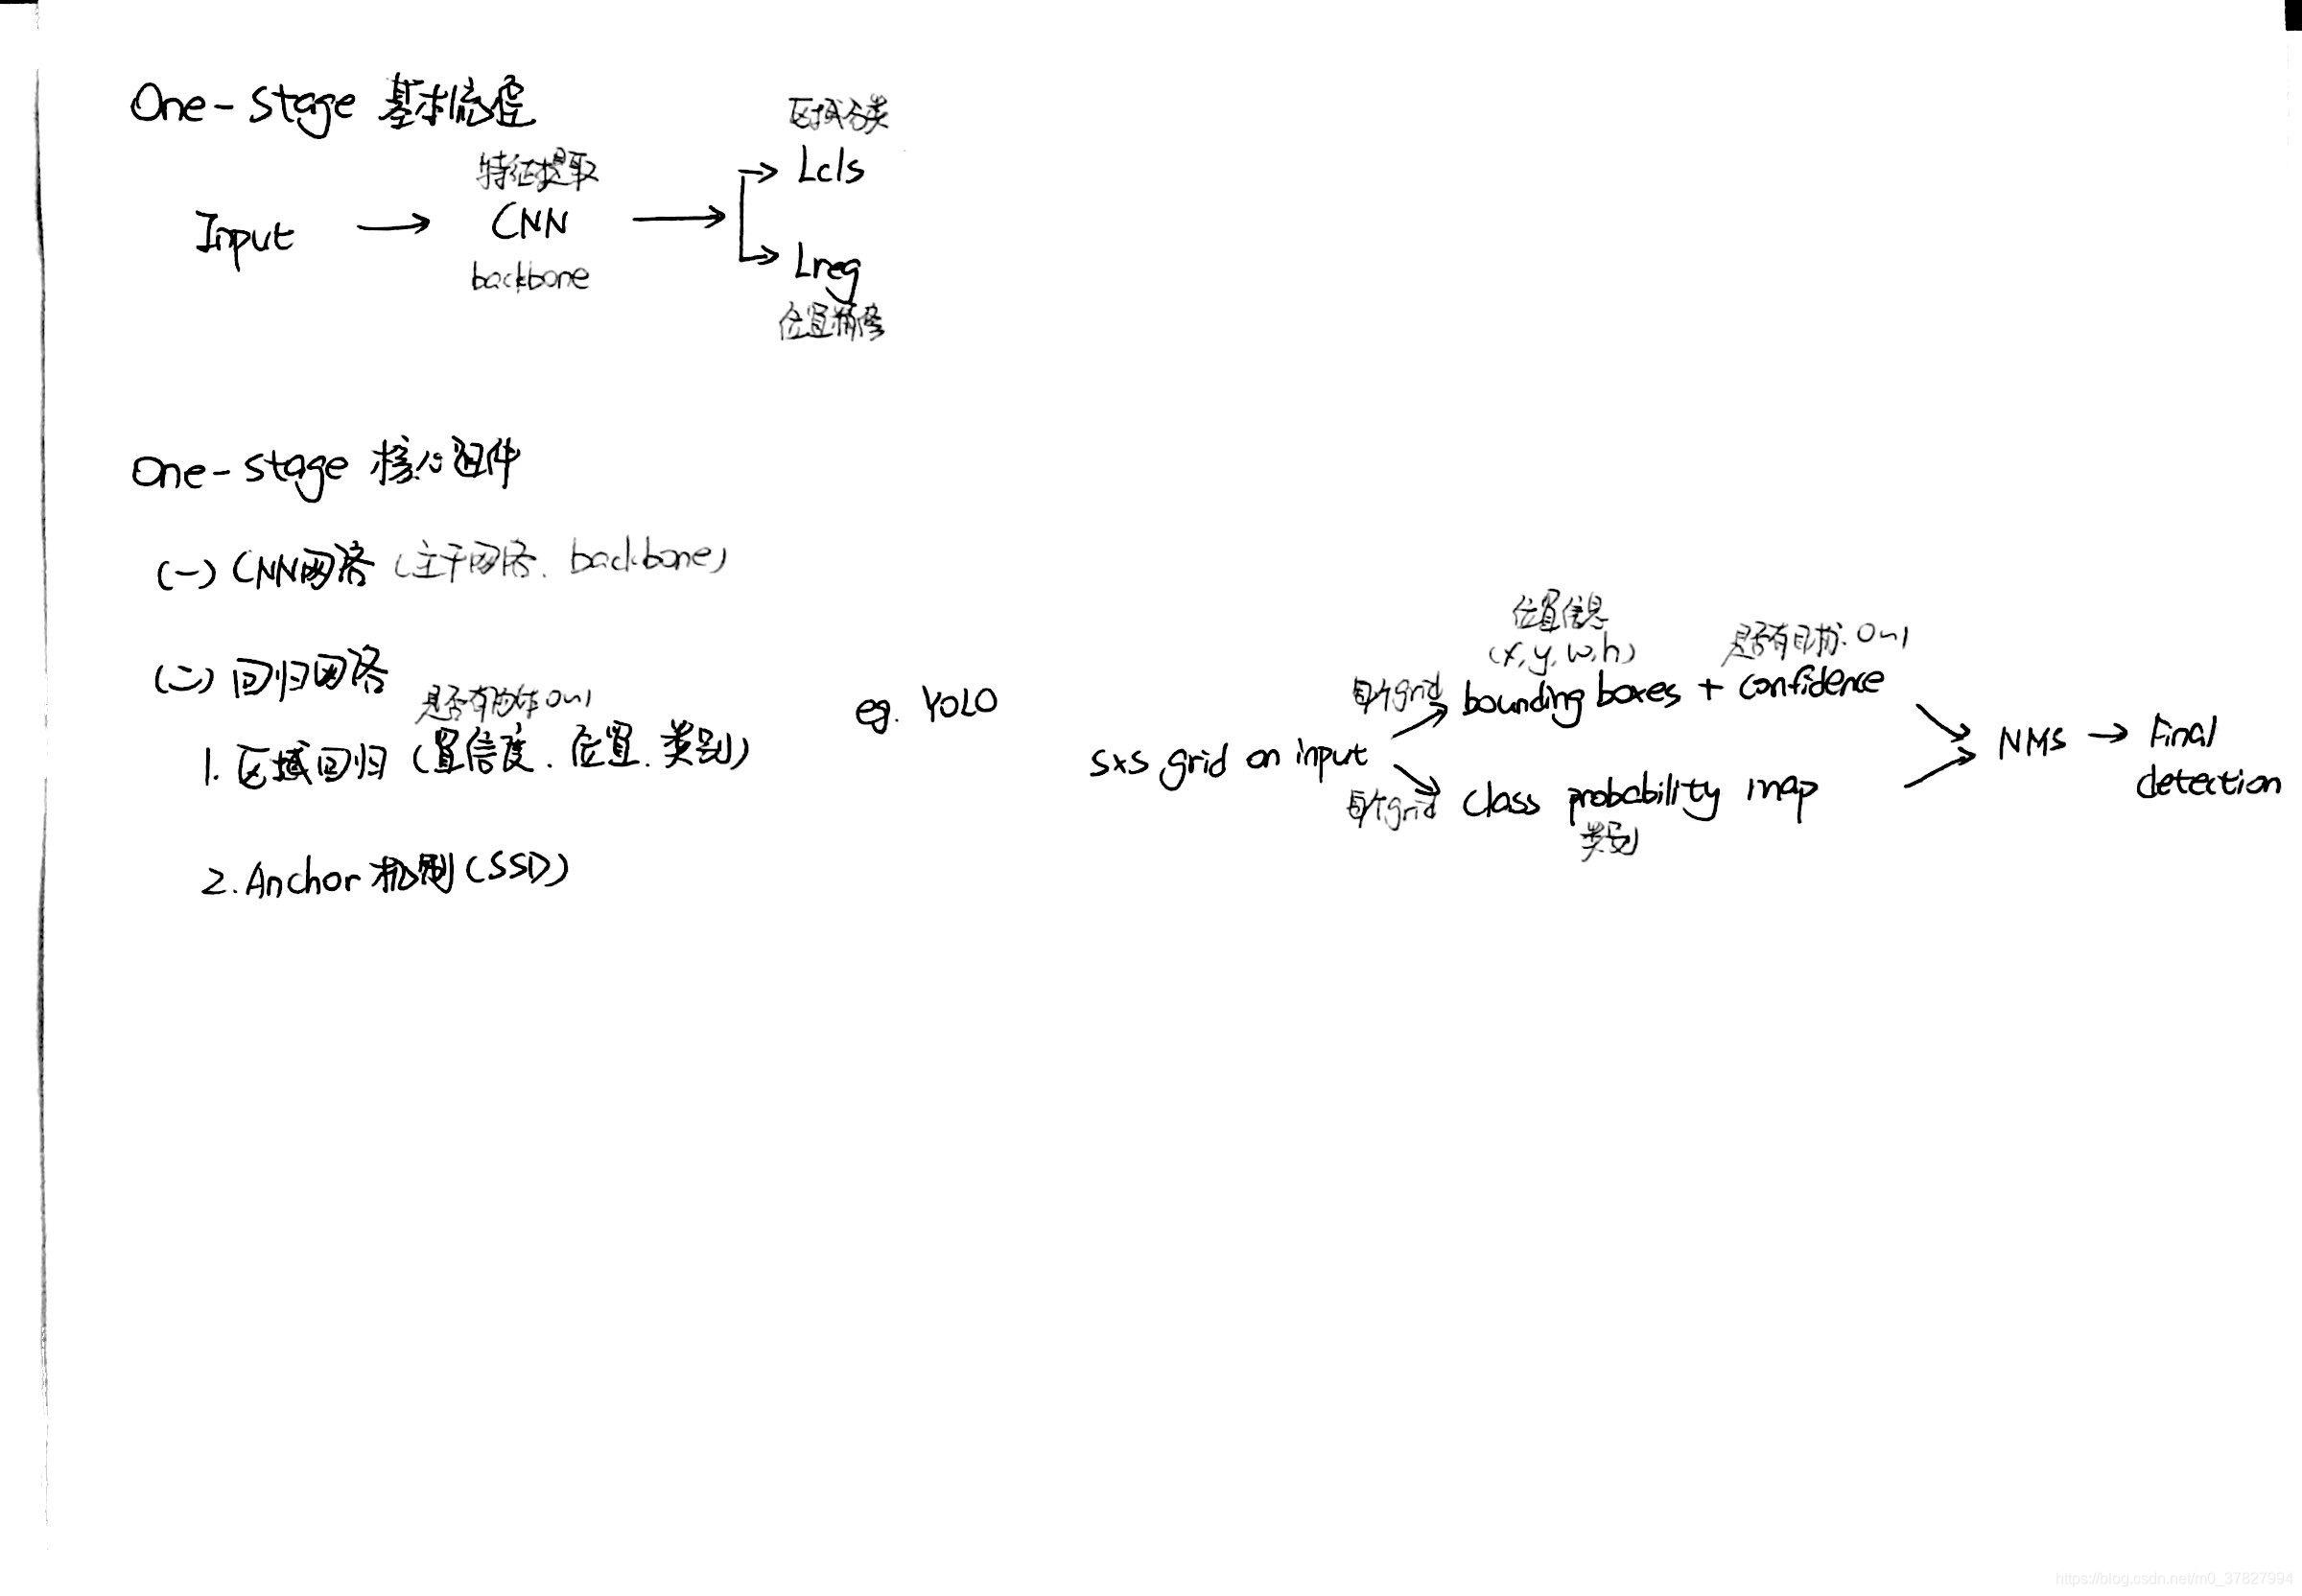 One-stage 基本流程
区域分类
特征提取
Lcls
Input → CNN →
backbone
Lreg
位置精修
One-stage 核心组件
(一) CNN网络 (主干网络、backbone)
(二) 回归网络
是否有物体 0~1
1. 区域回归 (置信度、位置、类别)
2. Anchor 机制 (SSD)
eg. YOLO
位置信息
(x, y, w, h)
是否有目标. 0~1
每个grid bounding boxes + confidence
SxS grid on input
每个grid class probability map
类别
NMS → Final
detection
https://blog.csdn.net/m0_37827994